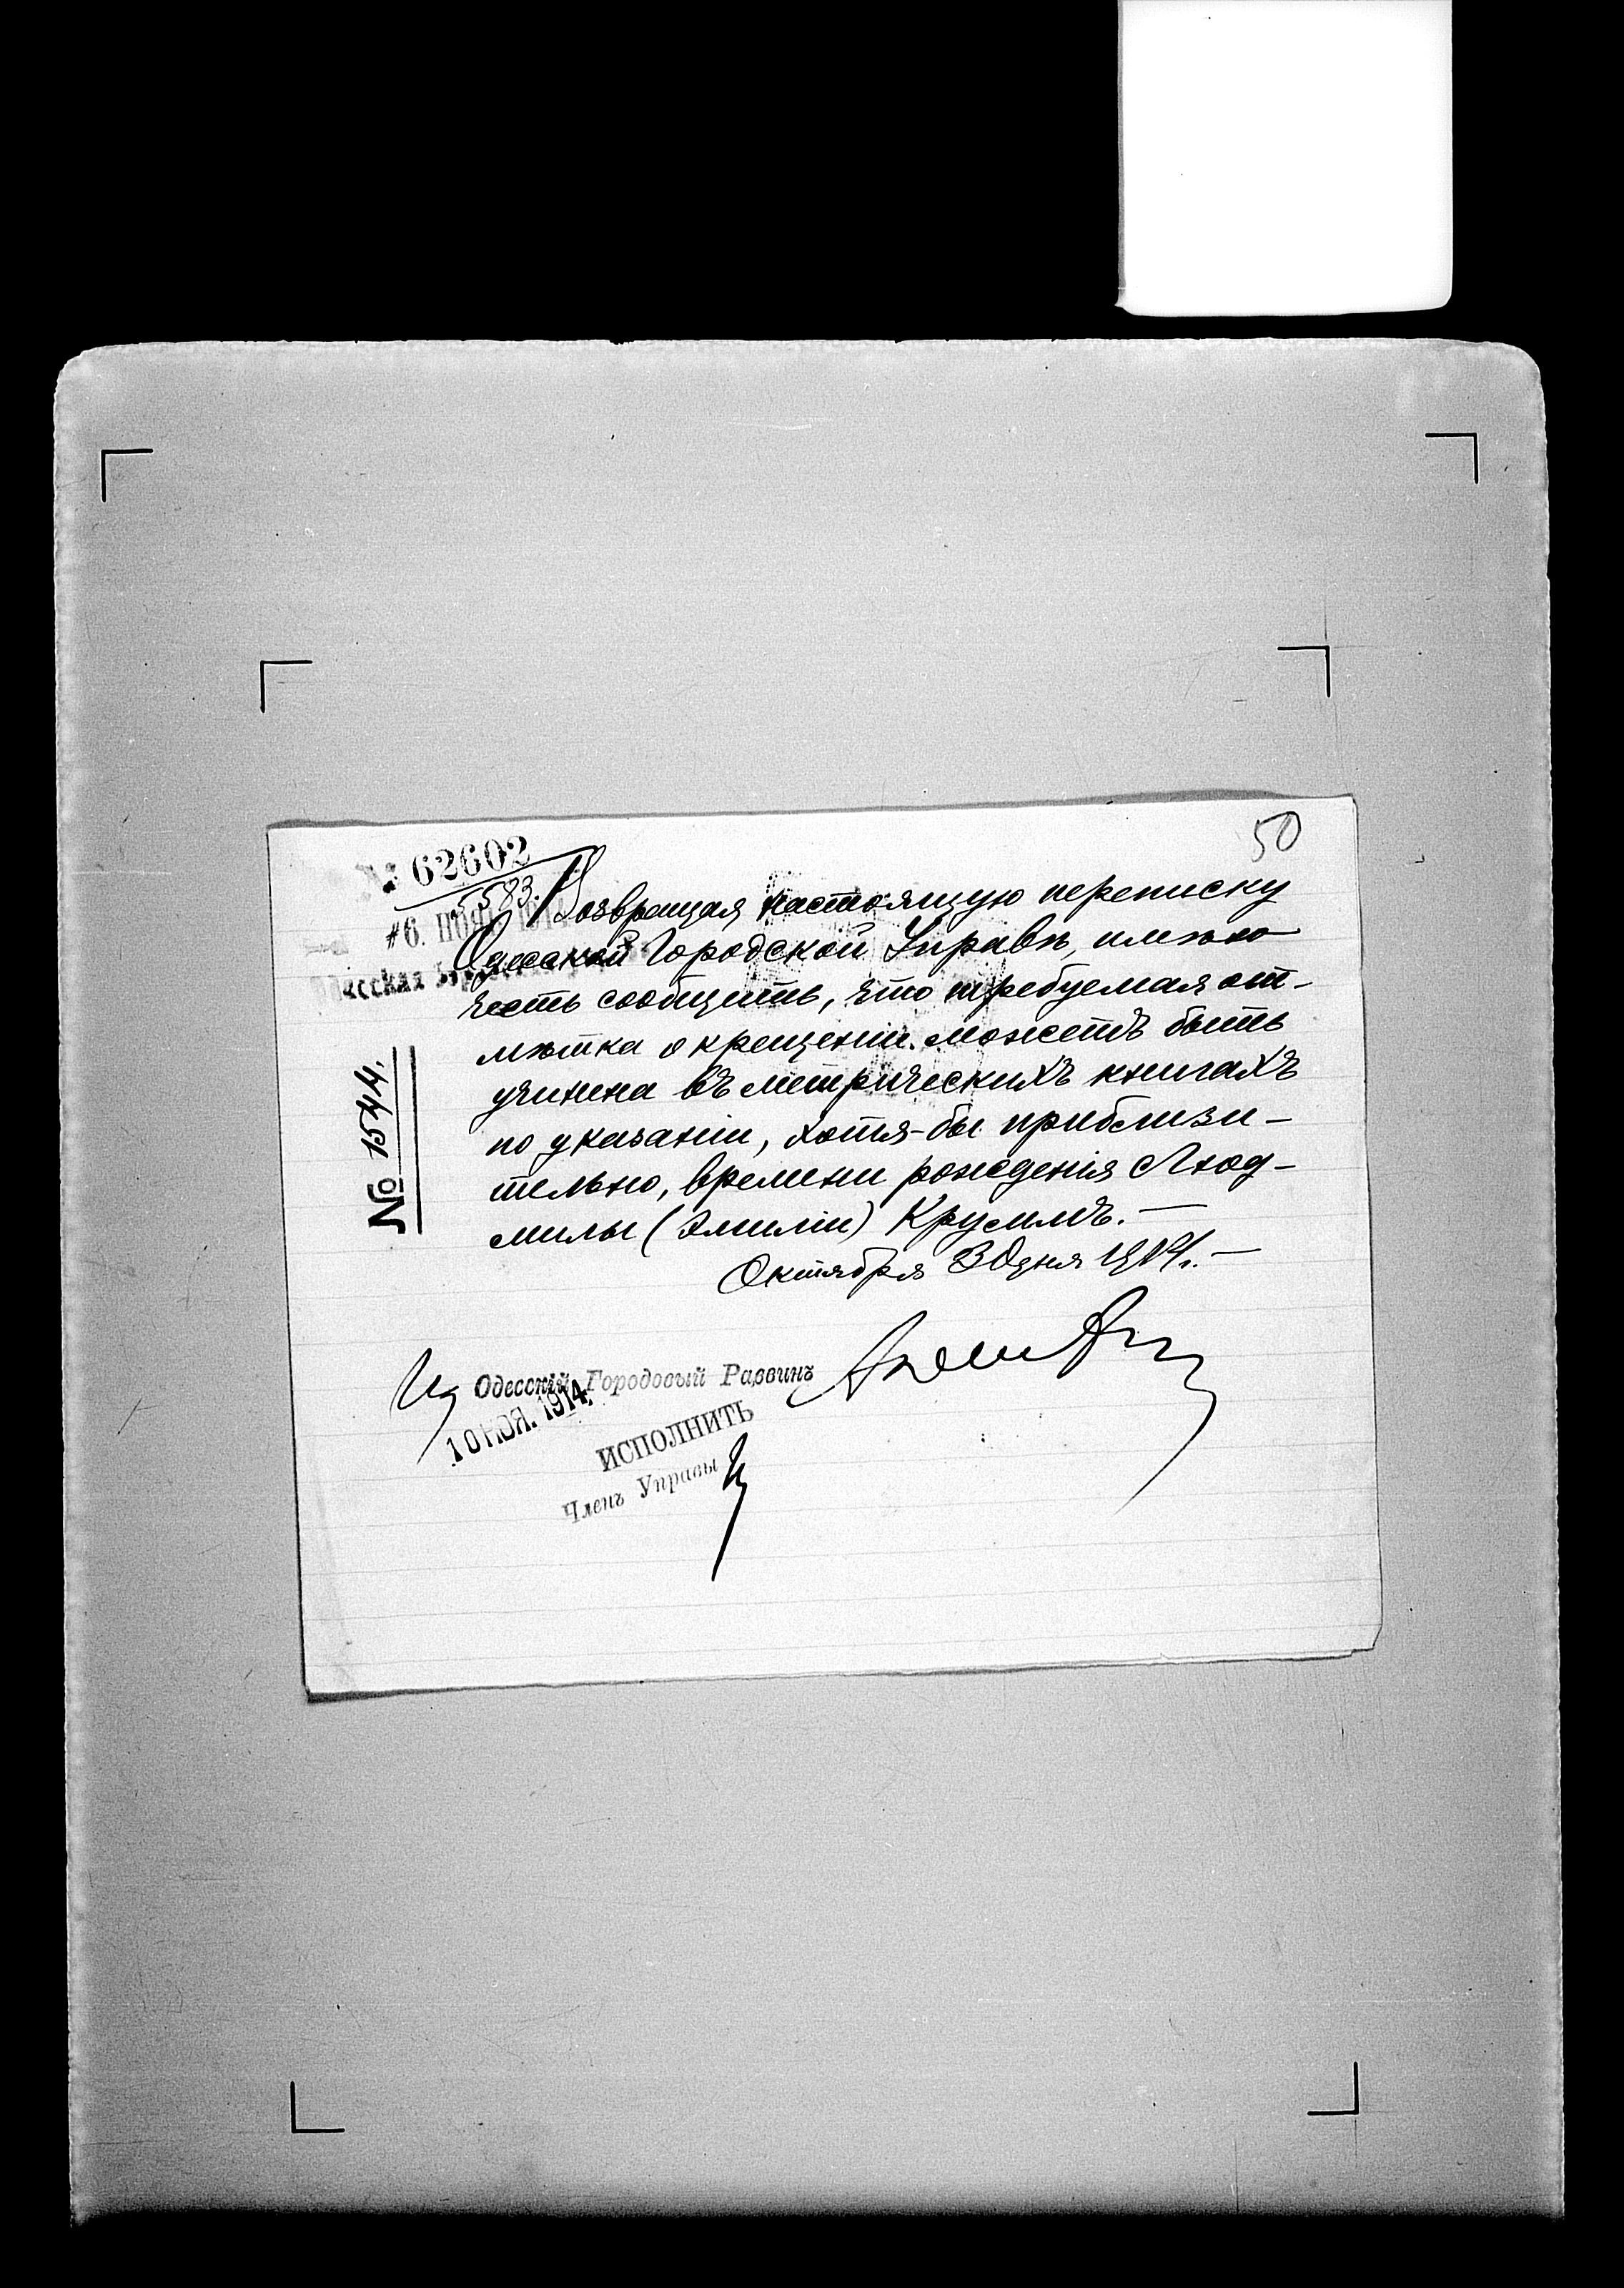 50
№ 62602
5583.
6. НОЯ. 1914
Одесская
Возвращая настоящую переписку
Одесской Городской Управѣ, имѣю
честь сообщить, что требуемая от-
мѣтка о крещеніи можетъ быть
учинена въ метрическихъ книгахъ
по указаніи, хотя-бы приблизи-
тельно, времени рожденія Люд-
милы (Эмиліи)
Октября 30 дня 1914г.
№ 1544.
Одесскій Городовый Раввинъ
10 НОЯ. 1914
ИСПОЛНИТЬ
Членъ Управы